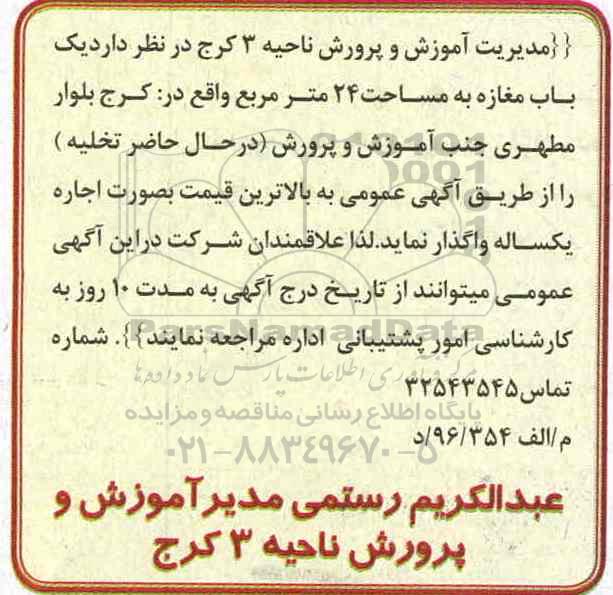 {{مدیریت آموزش و پرورش ناحیه ۳ کرج در نظر داردیک
باب مغازه به مساحت۲۴ متر مربع واقع در: کرج بلوار
مطهری جنب آموزش و پرورش (درحال حاضر تخلیه )
را از طریق آگهی عمومی به بالاترین قیمت بصورت اجاره
یکساله واگذار نماید.لذا علاقمندان شرکت دراین آگهی
عمومی میتوانند از تاریخ درج آگهی به مدت ۱۰ روز به
ParsNamadData
کارشناسی امور پشتیبانی اداره مراجعه نمایند}}. شماره
مرکز فرآوری اطلاعات پارس نماد داده ها
تماس۳۲۵۴۳۵۴۵
پایگاه اطلاع رسانی مناقصه و مزایده
م/الف ۹۶/۳۵۴/د
۰۲۱-۸۸۳۴۹۶۷۰-۵
عبدالکریم رستمی مدیرآموزش و
پرورش ناحیه ۳ کرج